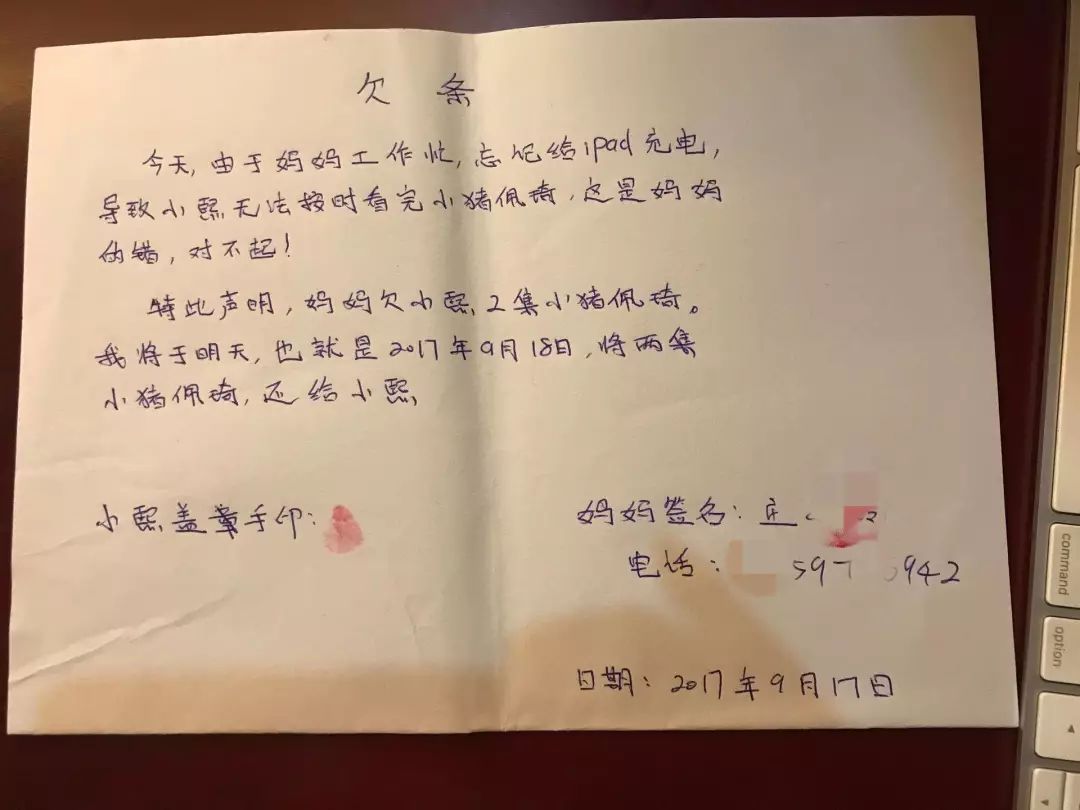 欠条
今天,由于妈妈工作忙,忘记给ipad充电,
导致小熙无法按时看完小猪佩琦,这是妈妈
的错,对不起!
特此声明,妈妈欠小熙2集小猪佩琦。
我将于明天,也就是2017年9月18日,将两集
小猪佩琦,还给小熙
小熙盖章手印:
妈妈签名:
电话: 597 942
日期:2017年9月17日
command
option